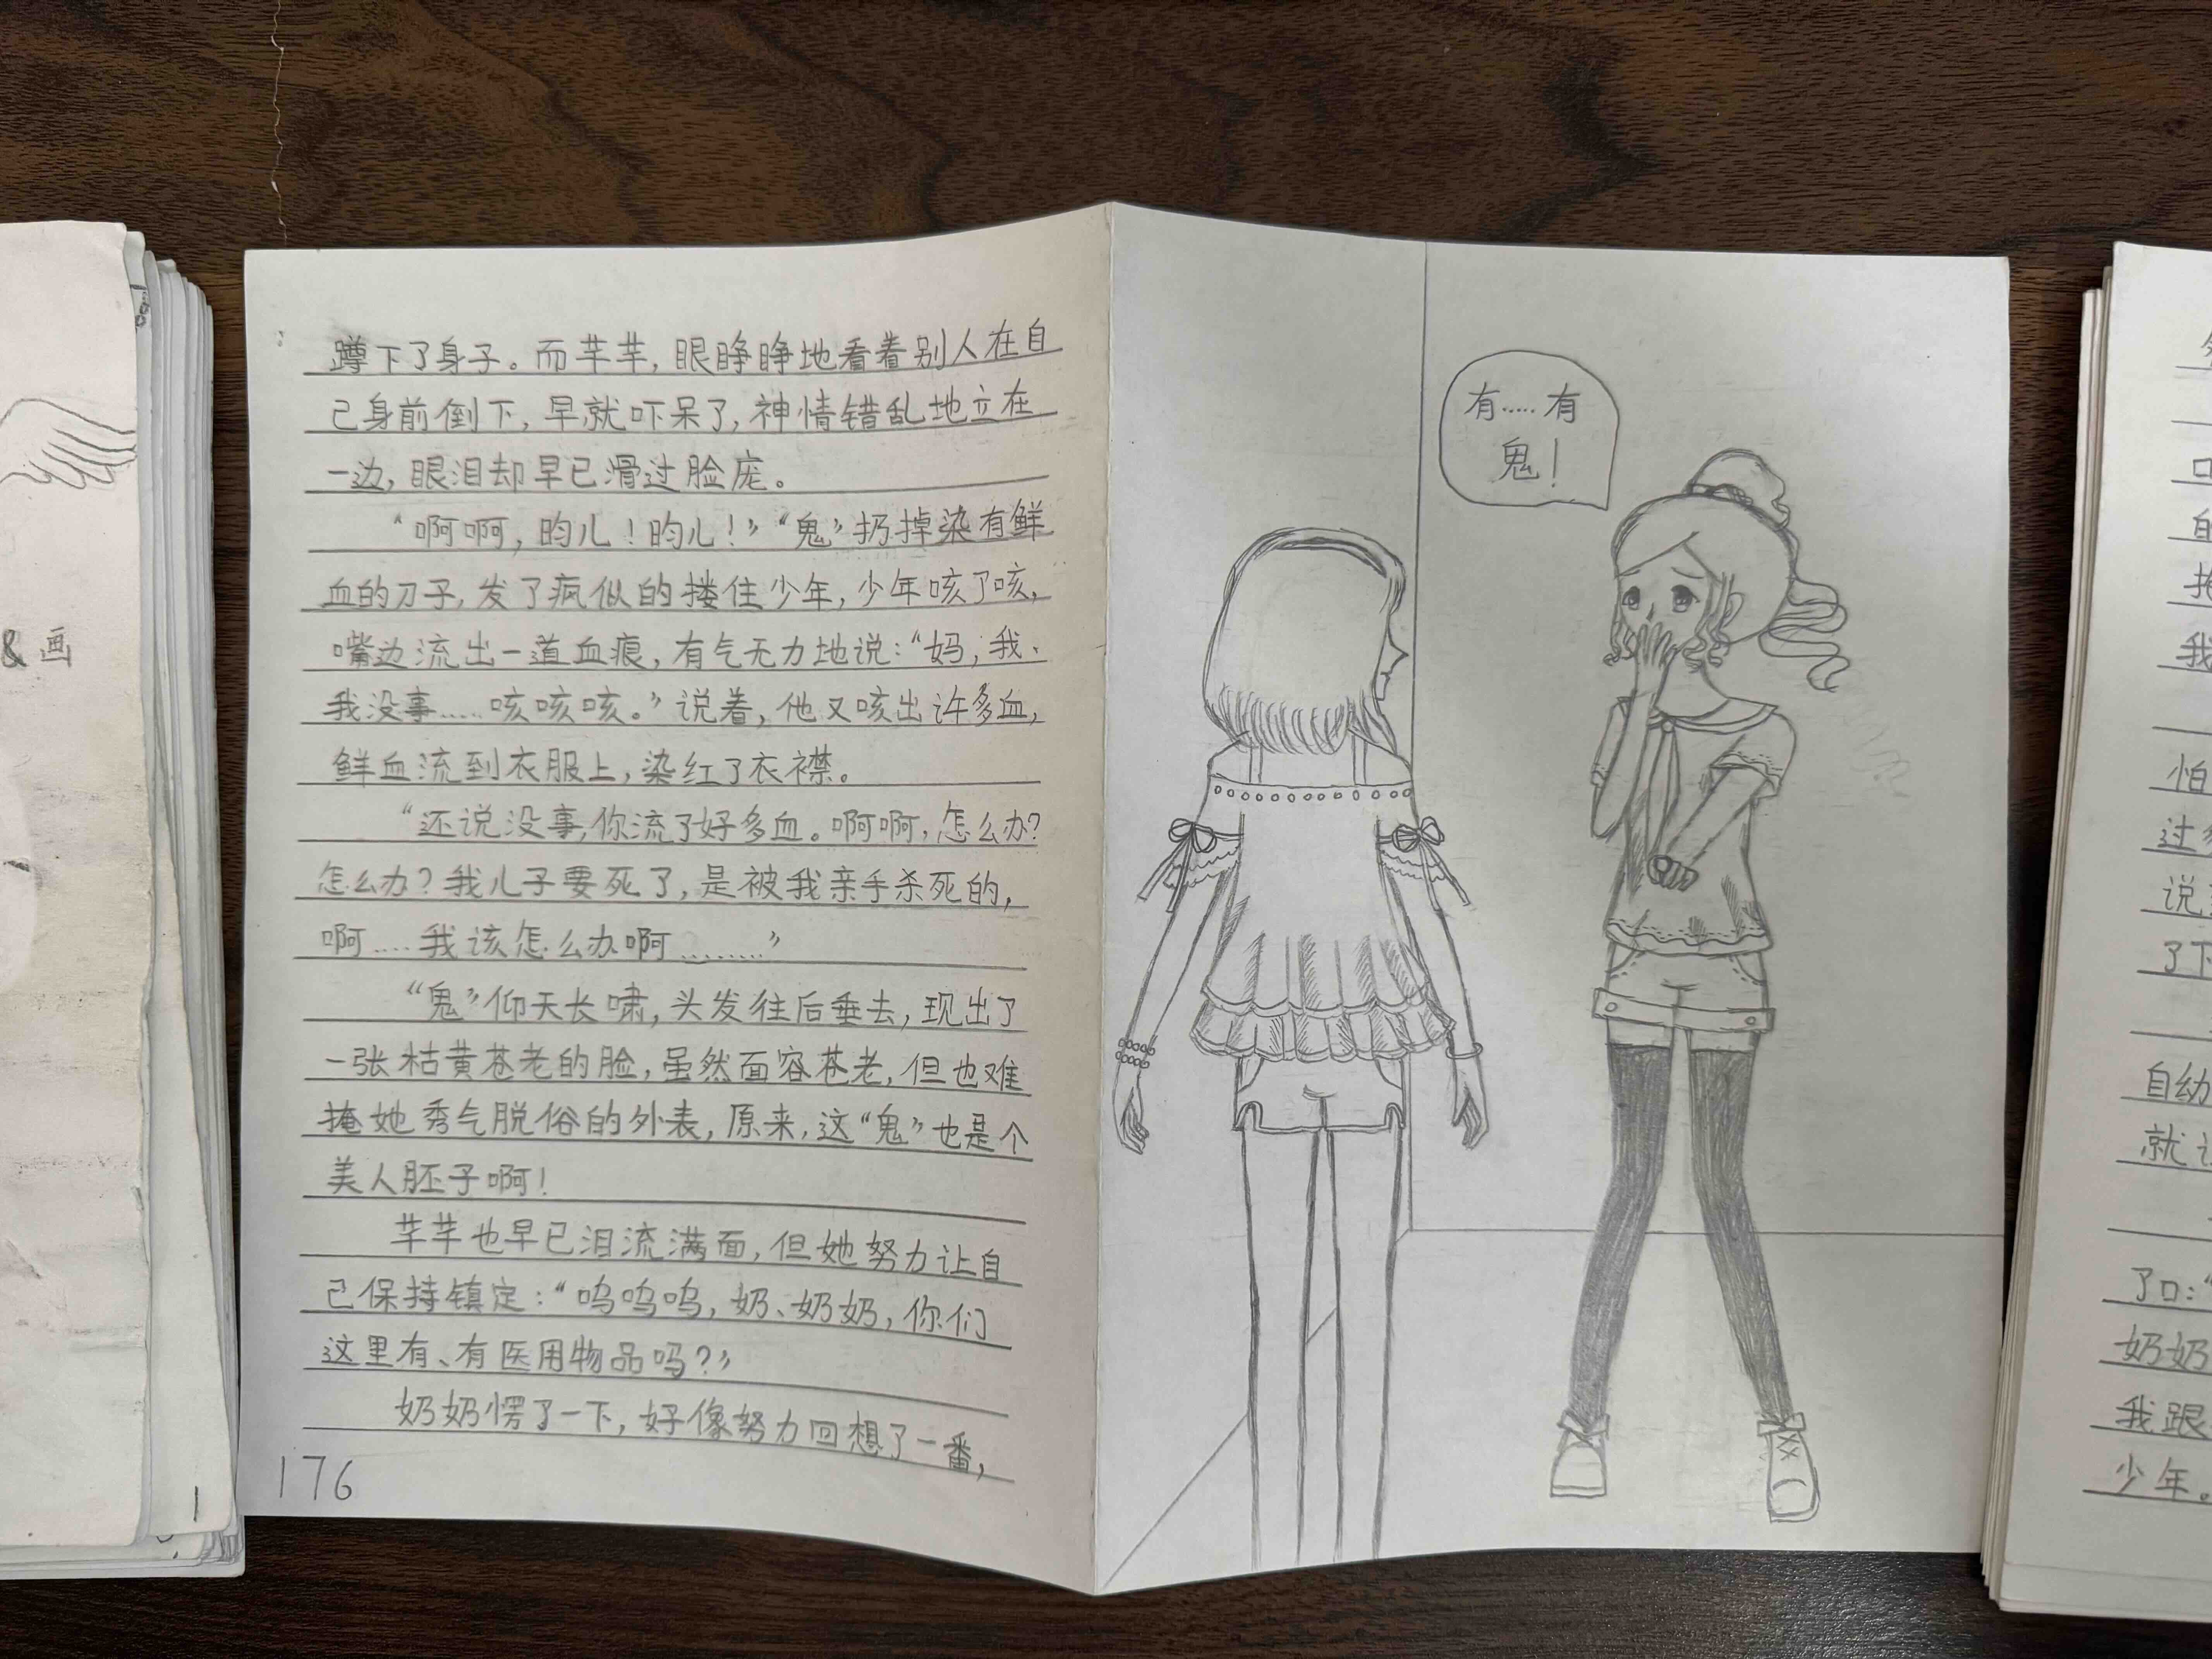 &画
1
蹲下了身子。而芊芊，眼睁睁地看着别人在自
己身前倒下，早就吓呆了，神情错乱地立在
一边，眼泪却早已滑过脸庞。
“啊啊，昀儿！昀儿！”“鬼”扔掉染有鲜
血的刀子，发了疯似的搂住少年，少年咳了咳，
嘴边流出一道血痕，有气无力地说：“妈，我、
我没事……咳咳咳。”说着，他又咳出许多血，
鲜血流到衣服上，染红了衣襟。
“还说没事，你流了好多血。啊啊，怎么办？
怎么办？我儿子要死了，是被我亲手杀死的，
啊……我该怎么办啊………”
“鬼”仰天长啸，头发往后垂去，现出了
一张枯黄苍老的脸，虽然面容苍老，但也难
掩她秀气脱俗的外表，原来，这“鬼”也是个
美人胚子啊！
芊芊也早已泪流满面，但她努力让自
己保持镇定：“呜呜呜，奶、奶奶，你们
这里有、有医用物品吗？”
奶奶愣了一下，好像努力回想了一番，
176
有……有
鬼！
口
怕
说
了下
自幼
就
了口：“
奶奶
我跟
少年。